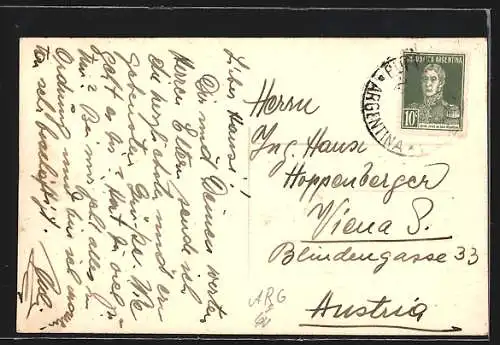 Lieber Hansi!
Dir und Deinen werten
Herren Eltern sende ich
die herzlichsten und er-
gebensten Grüsse. Wie
geht es Dir? Hast Du viel zu
tun? Bei uns geht alles in
Ordnung und bin ich
sehr beschäftigt.
Herrn
Ing. Hansi
Hoppenberger
Viena 8.
Blindengasse 33
Austria
ARG
REPUBLICA ARGENTINA
10c
ARGENTINA